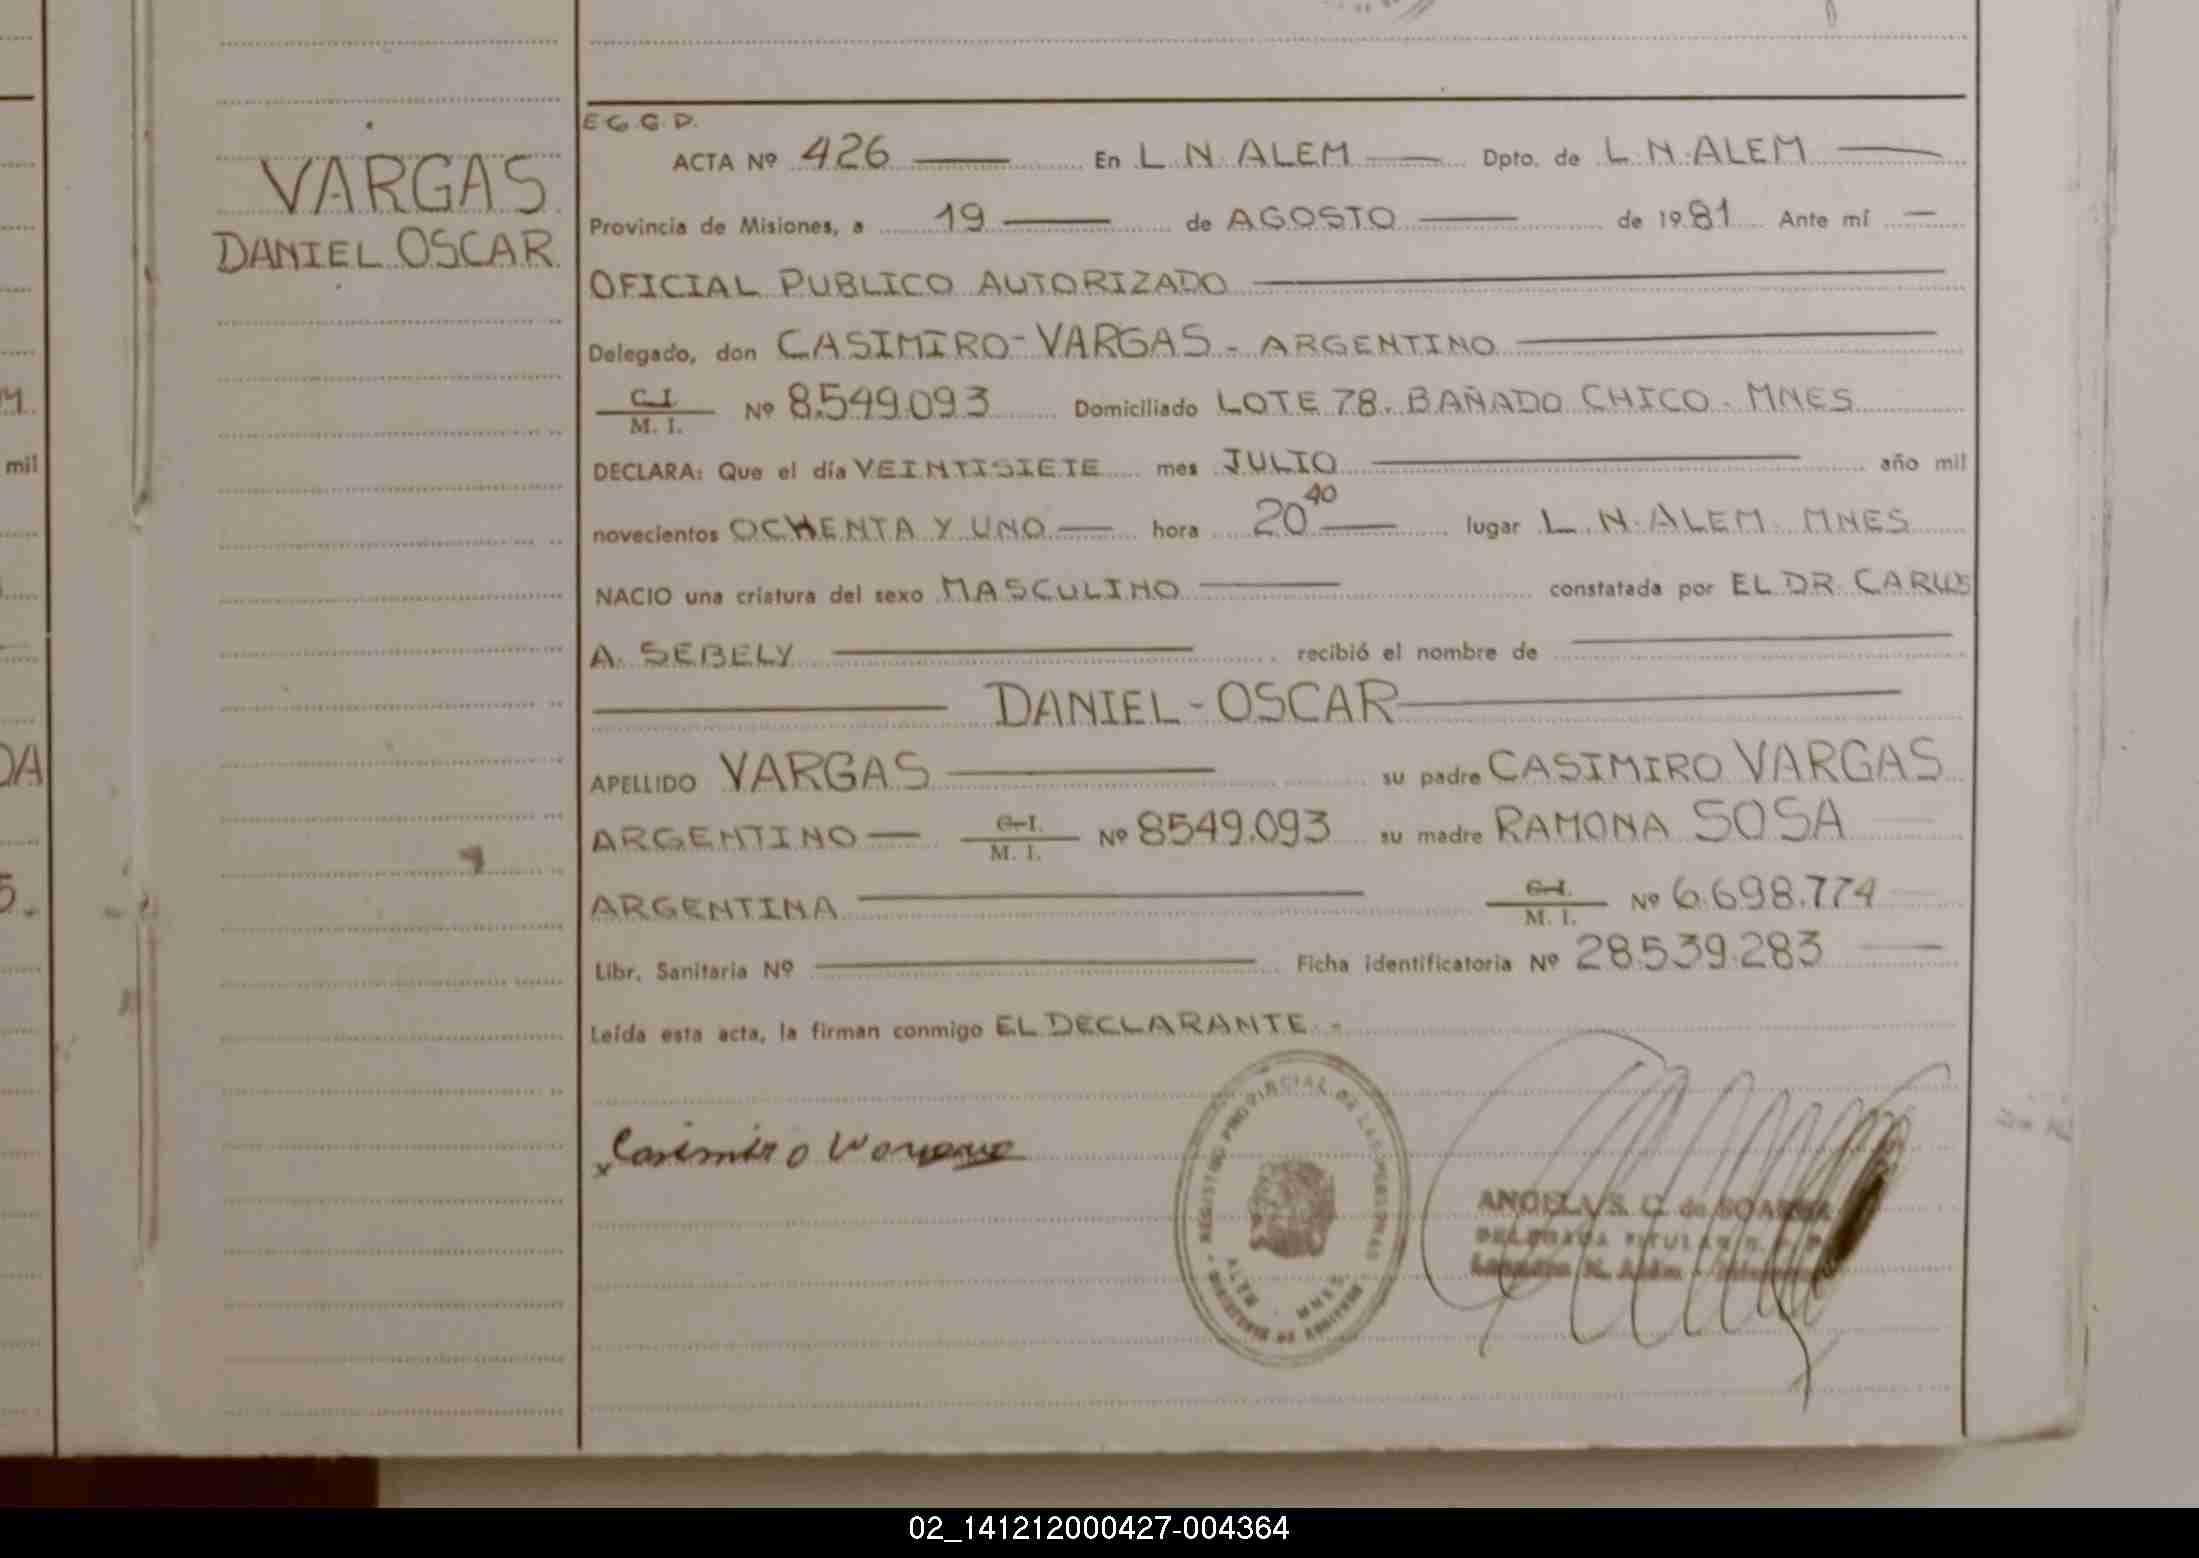 E.G.G.D.
ACTA Nº 426 En L. N. ALEM Dpto. de L. N. ALEM
VARGAS
DANIEL OSCAR
Provincia de Misiones, a 19 de AGOSTO de 1981 Ante mí
OFICIAL PUBLICO AUTORIZADO
Delegado, don CASIMIRO-VARGAS - ARGENTINO
C. I.
M. I. Nº 8.549.093 Domiciliado LOTE 78. BAÑADO CHICO - MNES
DECLARA: Que el día VEINTISIETE mes JULIO año mil
novecientos OCHENTA Y UNO hora 20 40 lugar L. N. ALEM MNES
NACIO una criatura del sexo MASCULINO constatada por EL DR. CARLOS
A. SEBELY recibió el nombre de
DANIEL - OSCAR
APELLIDO VARGAS su padre CASIMIRO VARGAS
ARGENTINO C. I.
M. I. Nº 8549.093 su madre RAMONA SOSA
ARGENTINA C. I.
M. I. Nº 6.698.774
Libr. Sanitaria Nº Ficha identificatoria Nº 28.539.283
Leída esta acta, la firman conmigo EL DECLARANTE.-
x Casimiro
REGISTRO PROVINCIAL DE LAS PERSONAS
ALEM - MNES
de
DELEGADA TITULAR
N. Alem
mil
DA
02_141212000427-004364